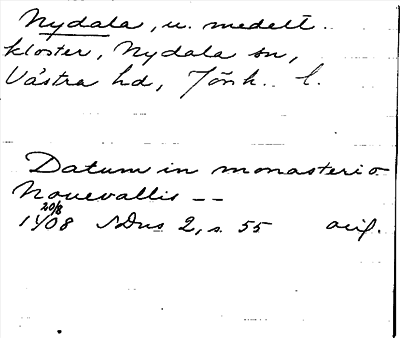 Nydala, u. medelt.
kloster, Nydala sn,
Västra hd, Jönk. l.
Datum in monasterio
Nouevallis --
20/8
1408 SDns 2, s. 55 orig.